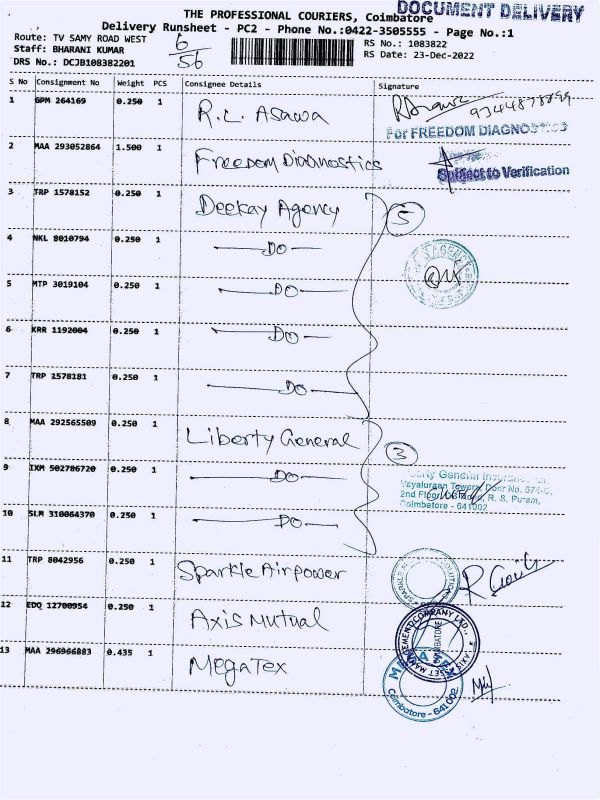 DOCUMENT DELIVERY
THE PROFESSIONAL COURIERS, Coimbatore
Delivery Runsheet - PC2 - Phone No.:0422-3505555 - Page No.:1
Route: TV SAMY ROAD WEST 6 RS No.: 1083822
Staff: BHARANI KUMAR 56 RS Date: 23-Dec-2022
DRS No.: DCJB108382201
S No Consignment No Weight PCS Consignee Details Signature
1 GPM 264169 0.250 1 R.L. Asawa
For FREEDOM DIAGNOSTICS
2 MAA 293052864 1.500 1 Freedom Diagnostics
Subject to Verification
3 TRP 1578152 0.250 1 Deekay Agency 5
4 NKL 8010794 0.250 1 DO
5 MTP 3019104 0.250 1 DO
6 KRR 1192004 0.250 1 DO
7 TRP 1578181 0.250 1 DO
8 MAA 292565509 0.250 1 Liberty General 3
9 IXM 502786720 0.250 1 DO
Liberty General
Vayaluraan Towers, Door No. 574-C,
2nd Floor, R. S. Puram,
Coimbatore - 641002
10 SLM 310064370 0.250 1 DO
11 TRP 8042956 0.250 1 Sparkle Airpower
12 EDQ 12700954 0.250 1 Axis Mutual
13 MAA 296966883 0.435 1 MegaTex
Coimbatore - 641 002